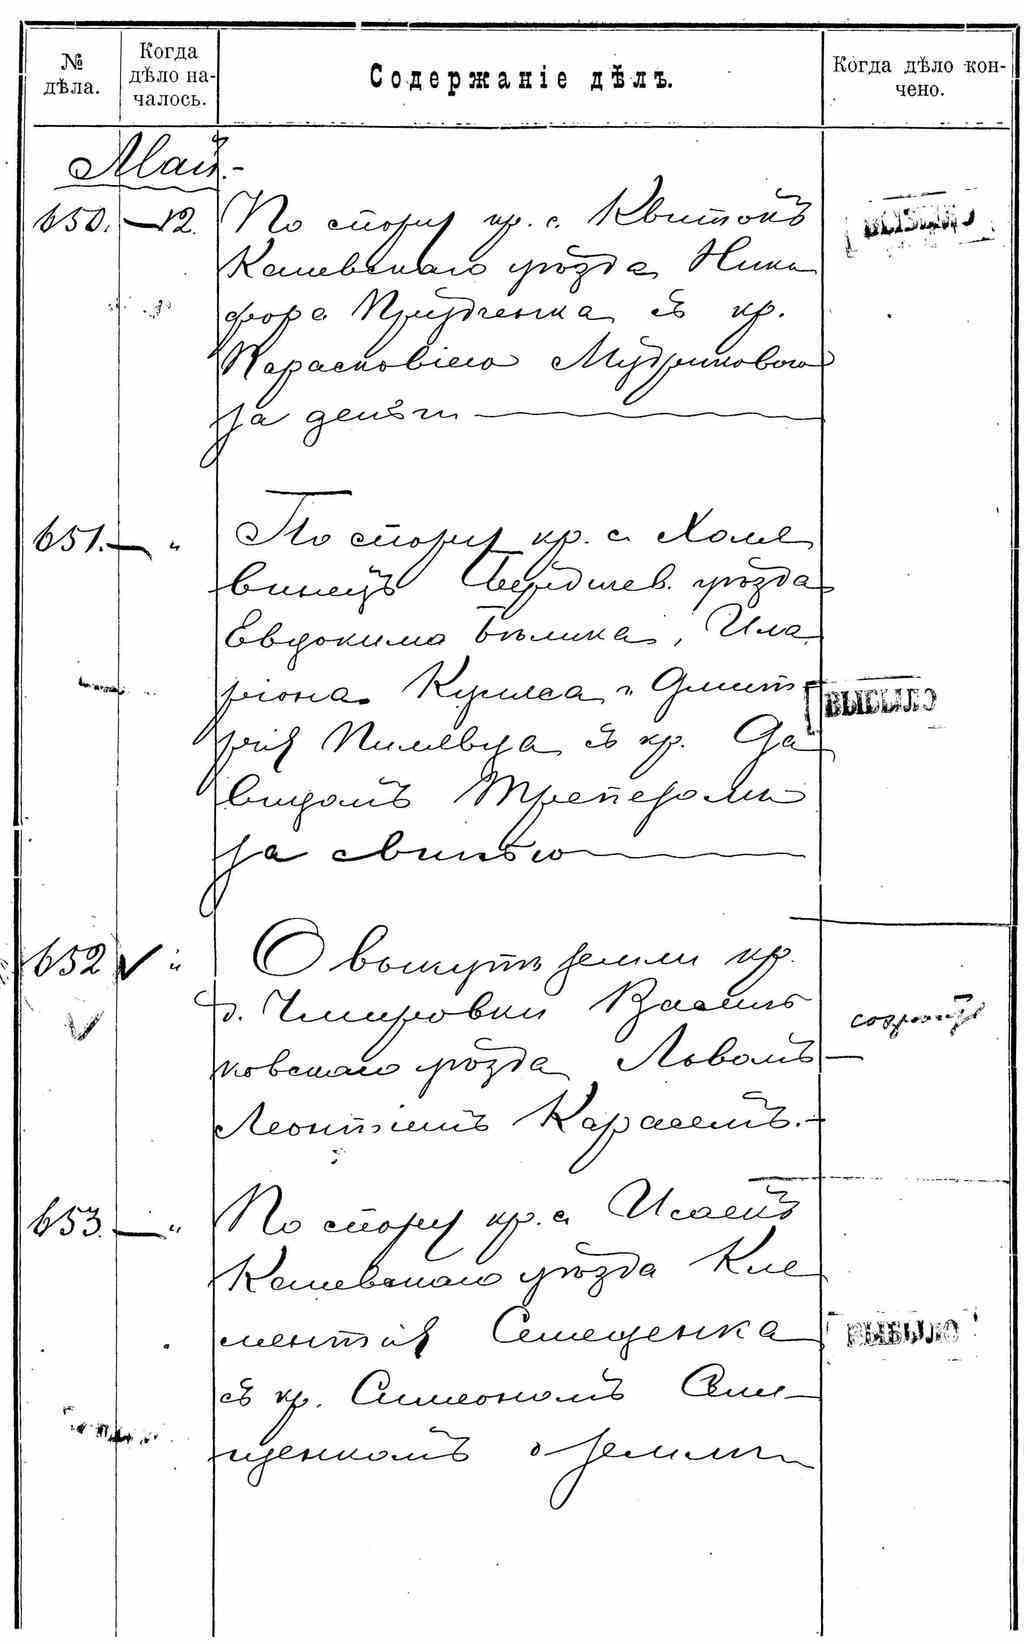 № дѣла.
Когда дѣло на-
чалось.
Содержаніе дѣлъ.
Когда дѣло кон-
чено.
Май.-
650. — 12. По спору кр. с. Квитокъ
Каневскаго уѣзда Ники
фора Прудченка съ кр.
Парасковіею Мудриковою
за деньги
651. — " По спору кр. с. Холя
винецъ Бердичев. уѣзда
Евдокима Бѣлика, Ила
ріона и Дмит-
рія Пилявца съ кр. Да
видомъ
за свинью
выбыло
652 " О выкупѣ земли кр.
д. Чмировки Василь
ковскаго уѣзда Львомъ
Леонтіемъ Карасемъ.-
653. — " По спору кр. с. Исаекъ
Каневскаго уѣзда Кле
ментія Семеценка
съ кр. Симеономъ Семе-
ценкомъ о земли
выбыло